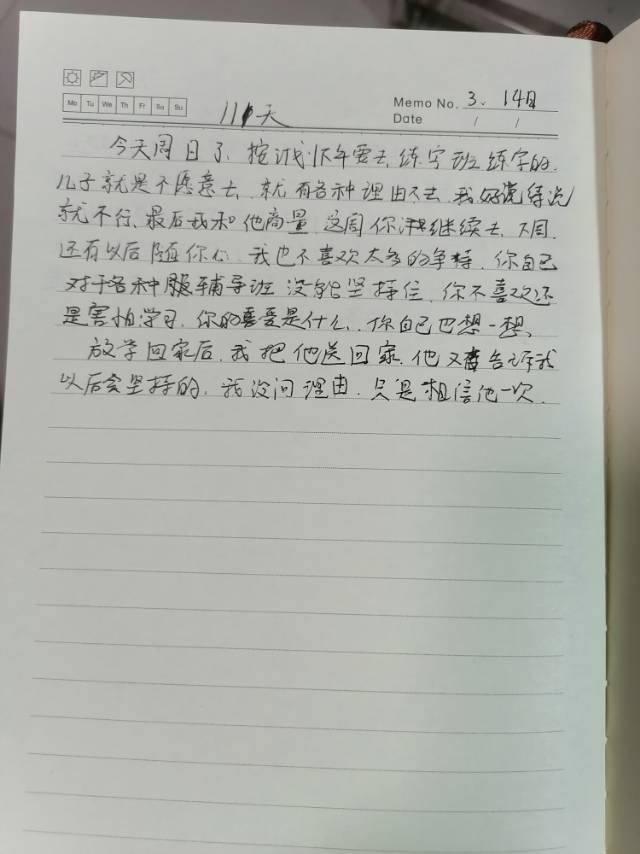 Memo No. 3. 14日
Mo Tu We Th Fr Sa Su
Date / /
11天
今天周日了、按计划下午要去练字班练字的.
儿子就是不愿意去.就有各种理由不去.我好说歹说
就不行、最后我和他商量.这周你继续去.下周.
还有以后随你心.我也不喜欢太多的争持.你自己
对于各种辅导班没能坚持住.你不喜欢还
是害怕学习.你的喜爱是什么、你自己也想一想、
放学回家后.我把他送回家.他又告诉我
以后会坚持的.我没问理由.只是相信他一次.